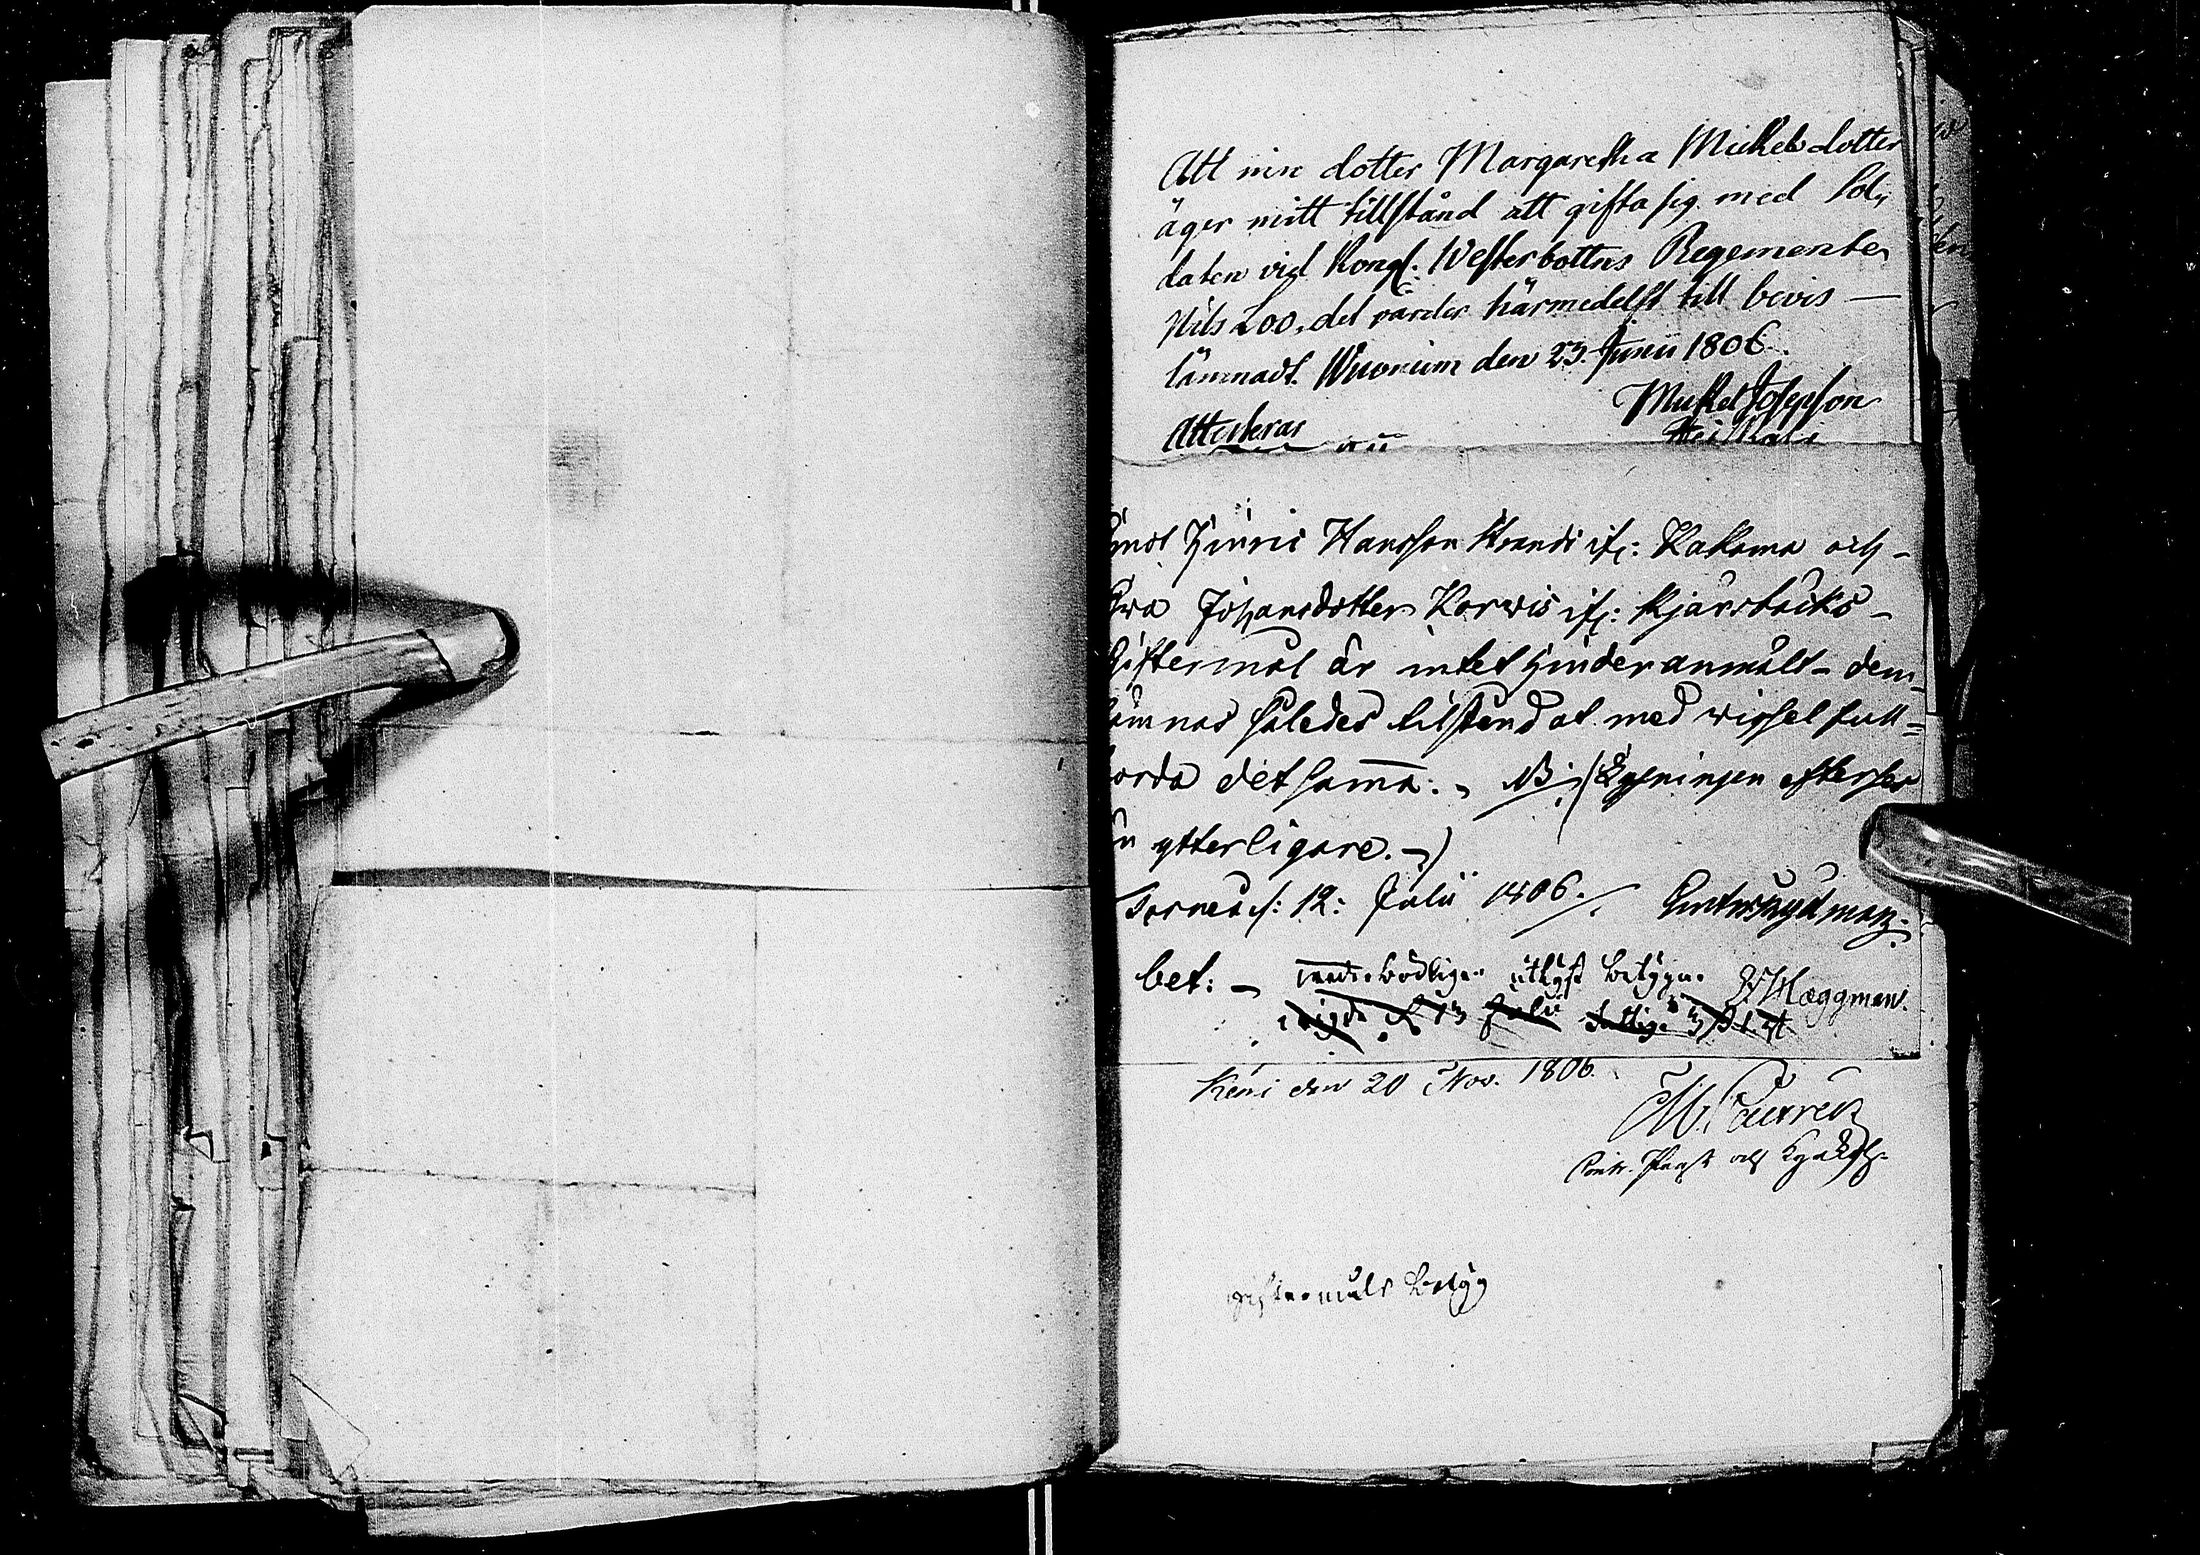 Att min dotter Margaretha Mickelsdotter
äger mitt tillstånd att gifta sig med Sol,,
daten vid Kongl: Westerbottns Regemente
Nils Loo, det varder härmedelst till bevis —
lämnadt. Wuonium den 23. Junii 1806.
Mickel Josepson
Attesteras
emot Hinric Hansson Strands ifr: Kakama och -
Ewa Johansdotter Korwis ifr: Kjärrbäcks -
Giftermål är intet hinder anmält - dem
lämnas således tilstånd at med wigsel full=
borda detsamma. - NB. (Lysningen efterses
än ytterligare. -)
Torneå d: 12: Julii 1806.
bet: - utlyst betygar Hæggman.
Julii
Kemi den 20 Nov. 1806.
Contr. Prost och Kyrkoh.
giftermåls betyg